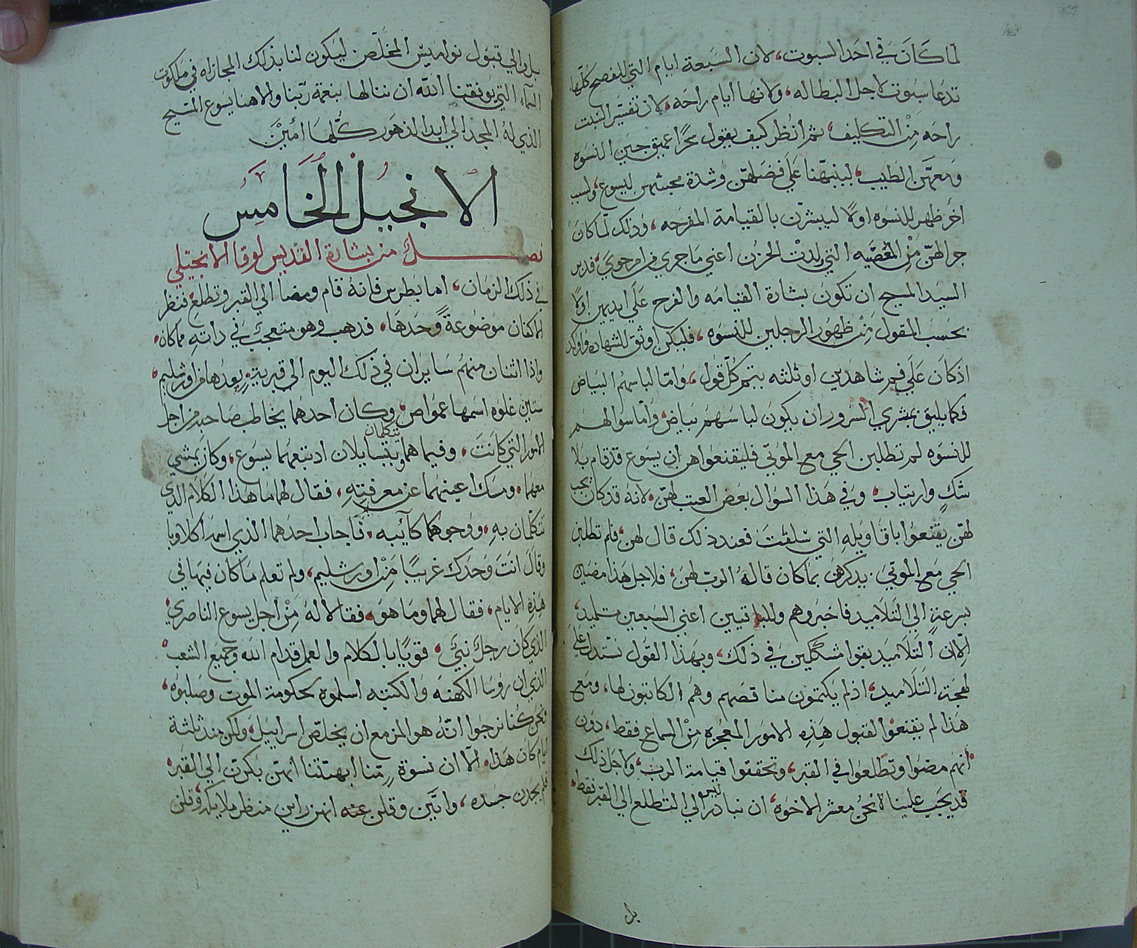 لما كان في احد السبوت، لان السبعة ايام التي للفصح كلها
تدعا سبوت لاجل البطاله، ولانها ايام راحه، لان تفسير السبت
راحه من التكليف، ثم انظر كيف يقول سحرًا عميق جين النسوه
ومعهن الطيب، لينبهنا على فضلهن وشدة محبتهن ليسوع،
ظهر للنسوه اولا ليبشرن بالقيامة المفرحه، وذلك لما كان
جرا لهن من القضيه التي ولدت الحزن اعني ما جري
السيد المسيح ان تكون بشارة القيامه والفرح على ايديهن اولا
بحسب المقول من ظهور الرجلين للنسوه، فليكن اوثق للشهاده واوكد
اذ كان على فم شاهدين او ثلثه يتم كل قول، واما لباسهم البياض
فكما يليق بمبشري السرور ان يكون لباسهم بياض، واما سوالهم
للنسوه لم تطلبن الحي مع الموتي فليقنعوا هن ان يسوع قد قام بلا
شك وارتياب، وفي هذا السوال بعض العتب لهن، لانه قد كان يجب
لهن يقتنعوا باقاويله التي سلفت فعند ذلك قال لهن، لم تطلبن
الحي مع الموتي، يذكرهن بما كان قاله الرب لهن، فلاجل هذا مضين
بسرعة الى التلاميذ فاخبروهم وللباقيين اعني السبعين تلميذ،
الا ان التلاميذ بقوا شكلين في ذلك، وبهذا القول نستدل على
لهجة التلاميذ، اذ لم يكتمون مناقصهم وهم الكاتبون لها، ومع
هذا لم يقنعوا لقبول هذه الامور المعجزه من السماع فقط، دون
انهم مضوا وتطلعوا في القبر، وتحققوا قيامة الرب، ولاجل ذلك
قد يجب علينا نحن معشر الاخوه، ان نبادر ليس الي التطلع الي القبر فقط،
بل
بل والي قبول نواميس المخلص ليكون لنا بذلك المجازاه في ملكوت
السماء، التي يوفقنا الله ان ننالها بنعمة ربنا والاهنا يسوع المسيح
الذي له المجد الي ابد الدهور كلها امين
الانجيل الخامس
فصل من بشارة القديس لوقا الانجيلي
في ذلك الزمان، اما بطرس فانه قام ومضا الي القبر وتطلع فنظر
الاكفان موضوعةً وحدها، فذهب وهو متعجب في ذاته مما كان،
واذا اثنان منهم سايران في ذلك اليوم الى قرية بعدها من اورشليم،
ستين غلوه اسمها عمواص، وكان احدهما يخاطب صاحبه من اجل
الامور التي كانت، وفيما هما يتكلمان ويتسايلان اذ تبعهما يسوع، وكان يمشي
معهما، ومسك اعينهما عن معرفته، فقال لهما ما هذا الكلام الذي
تتكلمان به، ووجوهكما كآئيبه، فأجاب احدهما الذي اسمه اكلاوبا
وقال انت وحدك غريبًا من اورشليم، ولم تعلم ما كان فيها في
هذه الايام، فقال لهما وما هو، فقالا له من اجل يسوع الناصري
الذي كان رجل نبي، قويًا بالكلام والعمل قدام الله وجميع الشعب
الذي ان روسا الكهنه والكتبه اسلموه لحكومة الموت وصلبوه،
ونحن كنا نرجوا انه هو المزمع ان يخلص اسرائيل، ولكن منذ ثلثة
ايام كان هذا، الا ان نسوة منا ابهتننا انهن بكرن الي القبر
فلم يجدن جسده، واتين وقلن عنه انهن راين منظر ملايكه، وقلن